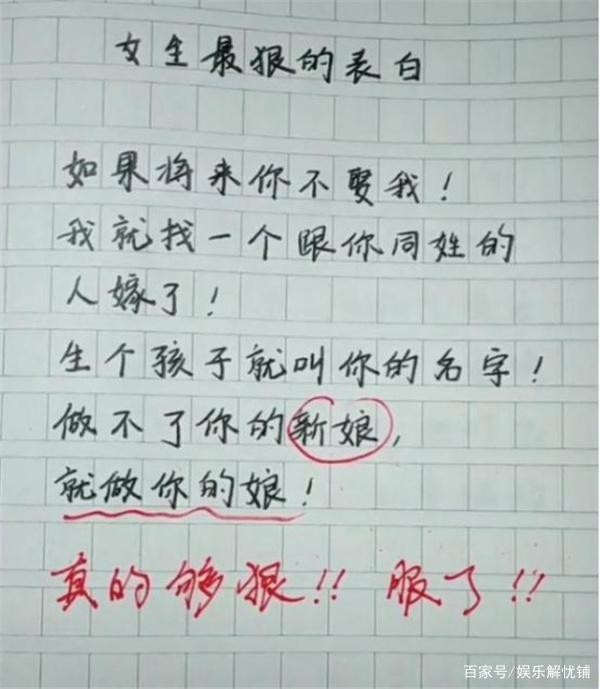 女生最狠的表白
如果将来你不娶我！
我就找一个跟你同姓的
人嫁了！
生个孩子就叫你的名字！
做不了你的新娘，
就做你的娘！
真的够狠!! 服了!!
百家号/娱乐解忧铺